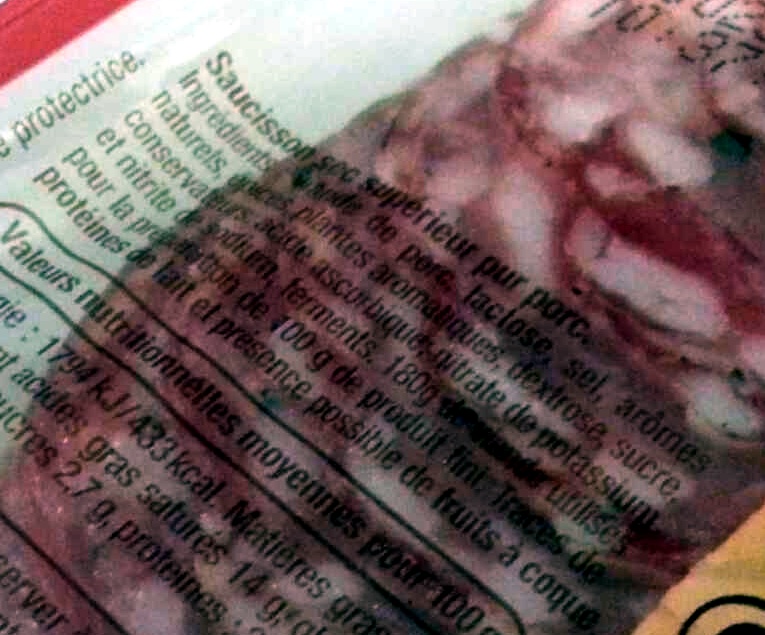 protectrice.
Saucisson sec supérieur pur porc.
Ingrédients: viande de porc, lactose, sel, arômes
naturels, plantes aromatiques, dextrose, sucre,
conservateurs: acide ascorbique, nitrate de potassium
et nitrite de sodium, ferments. 180g utilisé
pour la préparation de 100 g de produit fini. Traces de
protéines de lait et présence possible de fruits à coque.
Valeurs nutritionnelles moyennes pour 100 g
gie : 1794 kJ/433 kcal. Matières gras
nt acides gras saturés 14 g, gl
ucres 2,7 g, protéines :
server
10:37